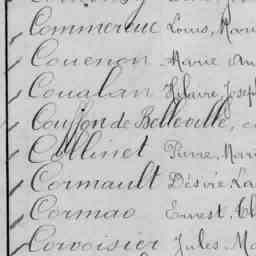 Commereuc Louis, Marie
Couenon Marie An
Coualan Hilaire, Josep
Couffon de Belleville,
Collinet Pierre, Mari
Cormault Désiré, La
Cormao Ernest, Ch
Corvoisier Jules, Ma